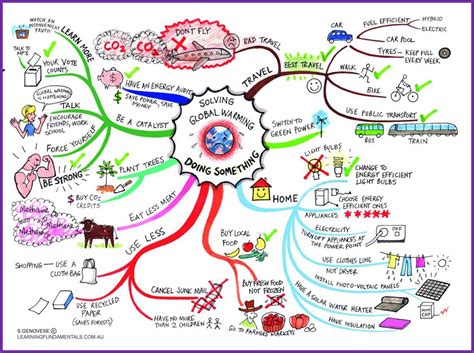 WATCH AN
INCONVENIENT
TRUTH
LEARN MORE
TALK TO
MP'S
YOUR VOTE
COUNTS
GLOBAL WARMING
IS HAPPENING
TALK
ENCOURAGE
FRIENDS, WORK
SCHOOL
BE A CATALYST
FORCE YOURSELF
BE STRONG
CO2
CO2
DON'T FLY
BAD TRAVEL
TRAVEL
BEST TRAVEL
CAR
FUEL EFFICIENT
HYBRID
ELECTRIC
CAR POOL
TYRES - KEEP FULL
EVERY WEEK
WALK
BIKE
USE PUBLIC TRANSPORT
BUS
TRAIN
HAVE AN ENERGY AUDIT
SAVE POWER, SAVE
MONEY
SOLVING
GLOBAL WARMING
DOING SOMETHING
SWITCH TO
GREEN POWER
PLANT TREES
BUY CO2
CREDITS
EAT LESS MEAT
Methane
Methane
HOME
LIGHT BULBS
CHANGE TO
ENERGY EFFICIENT
LIGHT BULBS
CHOOSE ENERGY
EFFICIENT ONES
APPLIANCES
ELECTRICITY
TURN OFF APPLIANCES AT
THE POWER POINT
USE CLOTHS LINE
NOT DRYER
INSTALL PHOTO-VOLTAIC PANELS
HAVE A SOLAR WATER HEATER
HAVE INSULATION
USE LESS
SHOPPING - USE A
CLOTH BAG
USE RECYCLED
PAPER
(SAVES FORESTS)
CANCEL JUNK MAIL
HAVE NO MORE
THAN 2 CHILDREN
BUY LOCAL
FOOD
BUY FRESH FOOD
NOT FROZEN
GO TO FARMERS MARKETS
© S.GENOVESE
LEARNINGFUNDAMENTALS.COM.AU